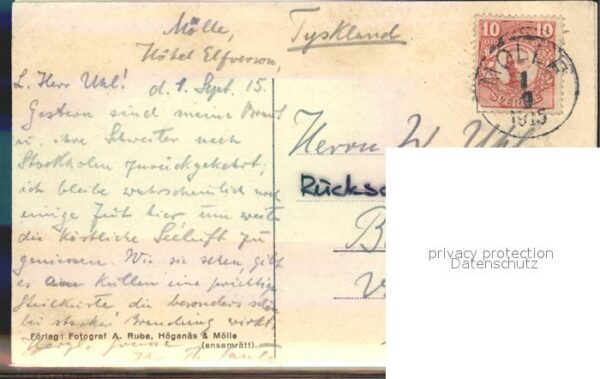 Mölle,
Hôtel Elfverson,
Tyskland
L. Herr Uhl! d. 1. Sept. 15.
Gestern sind meine Braut
u. ihre Schwester nach
Stockholm zurückgekehrt,
ich bleibe wahrscheinlich noch
einige Zeit hier um weiter
die köstliche Seeluft zu
geniessen. Wie sie sehen, gibt
es am Kullen eine prächtige
Steilküste die besonders schön
bei starker Brandung wirkt.
Herzl. Grüsse
Förlag: Fotograf A. Rube, Höganäs & Mölle
(ensamrätt).
10 10
SVERIGE
MÖLLE
1
9
1915
Herrn W. Uhl
Rücksc
privacy protection
Datenschutz